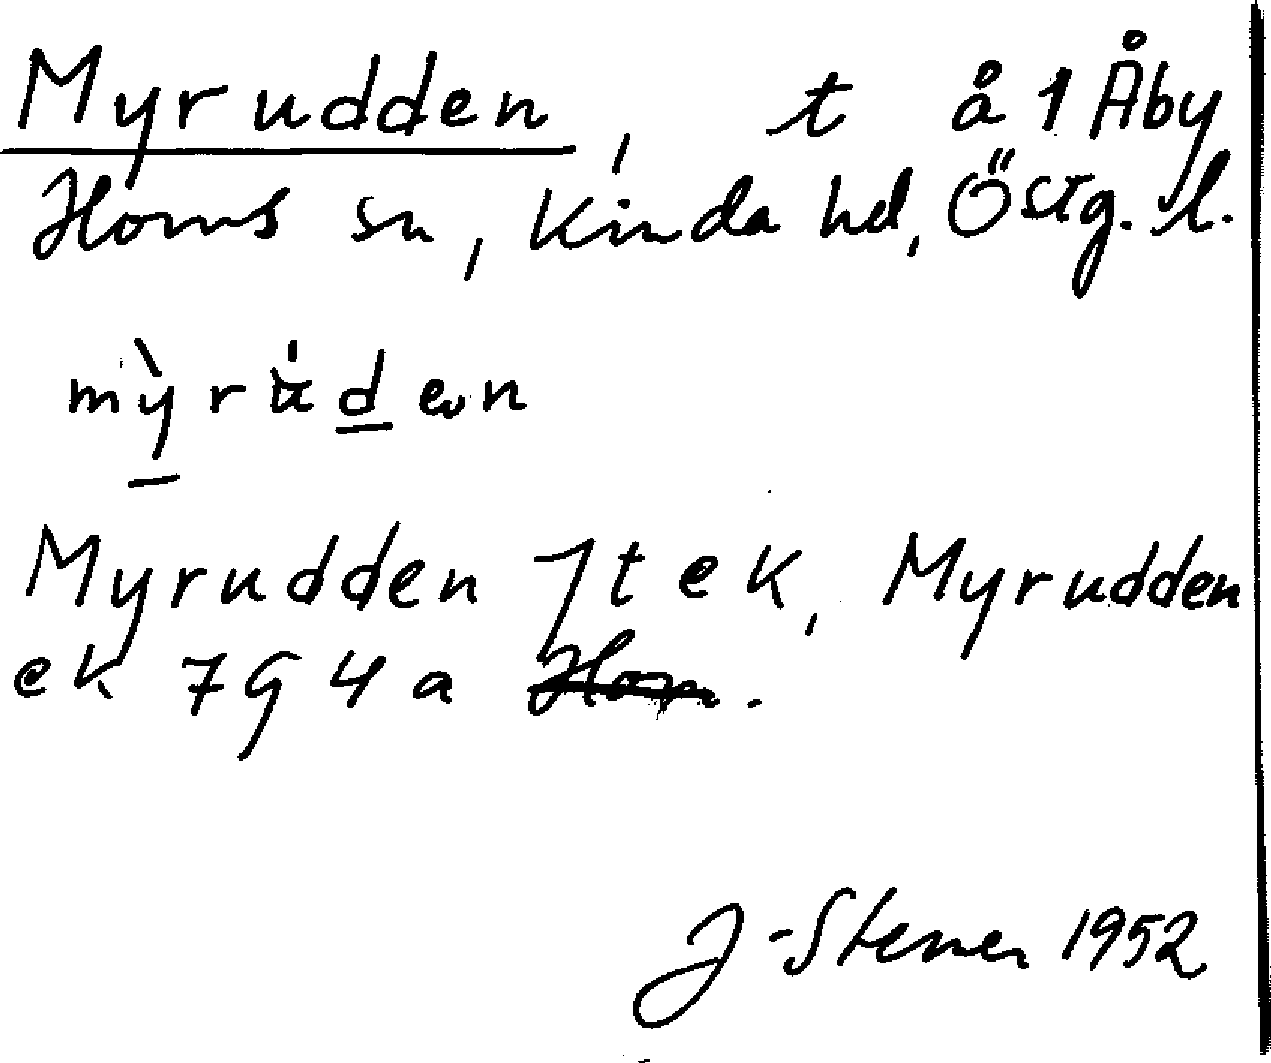 Myrudden, t å 1 Åby
Horns sn, Kinda hd, Östg. l.
mỳrùden
Myrudden Jt ek, Myrudden
ek 7G4a Horn.
J-Stener 1952